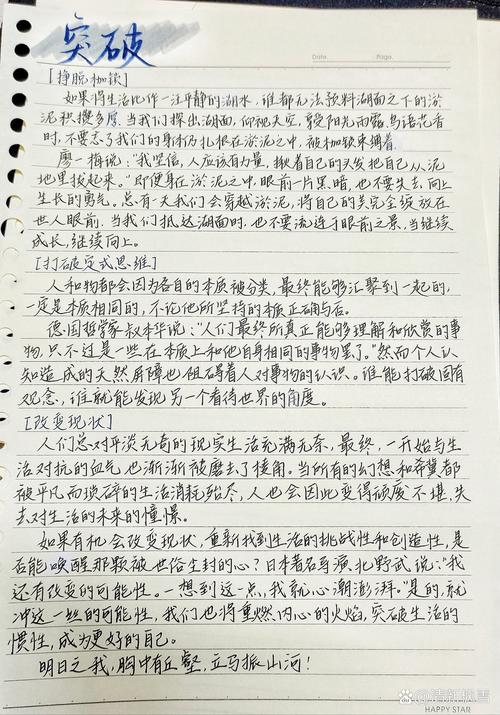 突破
Date.
Page.
[挣脱枷锁]
如果将生活比作一汪平静的湖水，谁都无法预料湖面之下的淤
泥积攒多厚。当我们探出湖面，仰视天空，享受阳光雨露、鸟语花香
时，不要忘了我们的身体仍扎根在淤泥之中，被枷锁束缚着。
廖一梅说："我坚信，人应该有力量，揪着自己的头发把自己从泥
地里拔起来。"即便身在淤泥之中，眼前一片黑暗，也不要失去向上
生长的勇气。总有一天我们会穿越淤泥，将自己的美完全绽放在
世人眼前。当我们抵达湖面时，也不要流连于眼前之景，当继续
成长，继续向上。
[打破定式思维]
人和物都会因为各自的本质被分类，最终能够汇聚到一起的，
一定是本质相同的，不论他所坚持的本质正确与否。
德国哲学家叔本华说："人们最终所真正能够理解和欣赏的事
物，只不过是一些在本质上和他自身相同的事物罢了。"然而个人认
知造成的天然屏障也阻碍着人对事物的认识。谁能打破固有
观念，谁就能发现另一个看待世界的角度。
[改变现状]
人们总对平淡无奇的现实生活充满无奈，最终，一开始与生
活对抗的血气也渐渐被磨去了棱角。当所有的幻想和希冀都
被平凡而琐碎的生活消耗殆尽，人也会因此变得颓废不堪，失
去对生活的未来的憧憬。
如果有机会改变现状，重新找到生活的挑战性和创造性，是
否能唤醒那颗被世俗尘封的心？日本著名导演北野武说："我
还有改变的可能性。一想到这一点，我就心潮澎湃。"是的，就
冲这一丝的可能性，我们也将重燃内心的火焰，突破生活的
惯性，成为更好的自己。
明日之我，胸中有丘壑，立马振山河！
HAPPY STAR